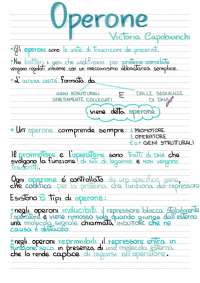 Operone
Victoria Capobianchi
•Gli operoni sono le unità di trascrizione dei procarioti.
•Nei batteri i geni che codificano per proteine correlate
vengono regolati insieme con un meccanismo abbastanza semplice.
•L' è formato da
GENI STRUTTURALI
STRETTAMENTE COLLEGATI
E
DALLE SEQUENZE
DI DNA
viene detto operone
•Un operone comprende sempre: 1 PROMOTORE
1 OPERATORE
2 o + GENI STRUTTURALI
Il promotore e l'operatore sono tratti di DNA che
svolgono la funzione di siti di legame e non vengono
trascritti.
Ogni operone è controllato da uno specifico gene,
che codifica per la proteina che funziona da repressore
Esistono 2 tipi di operoni:
•negli operoni inducibili il repressore blocca stabilmente
l'operatore e viene rimosso solo quando giunge dall'esterno
una molecola segnale chiamata induttore che ne
causa il distacco
•negli operoni reprimibili il repressore entra in
funzione solo in presenza di una molecola esterna
che lo rende capace di legarsi all'operatore.